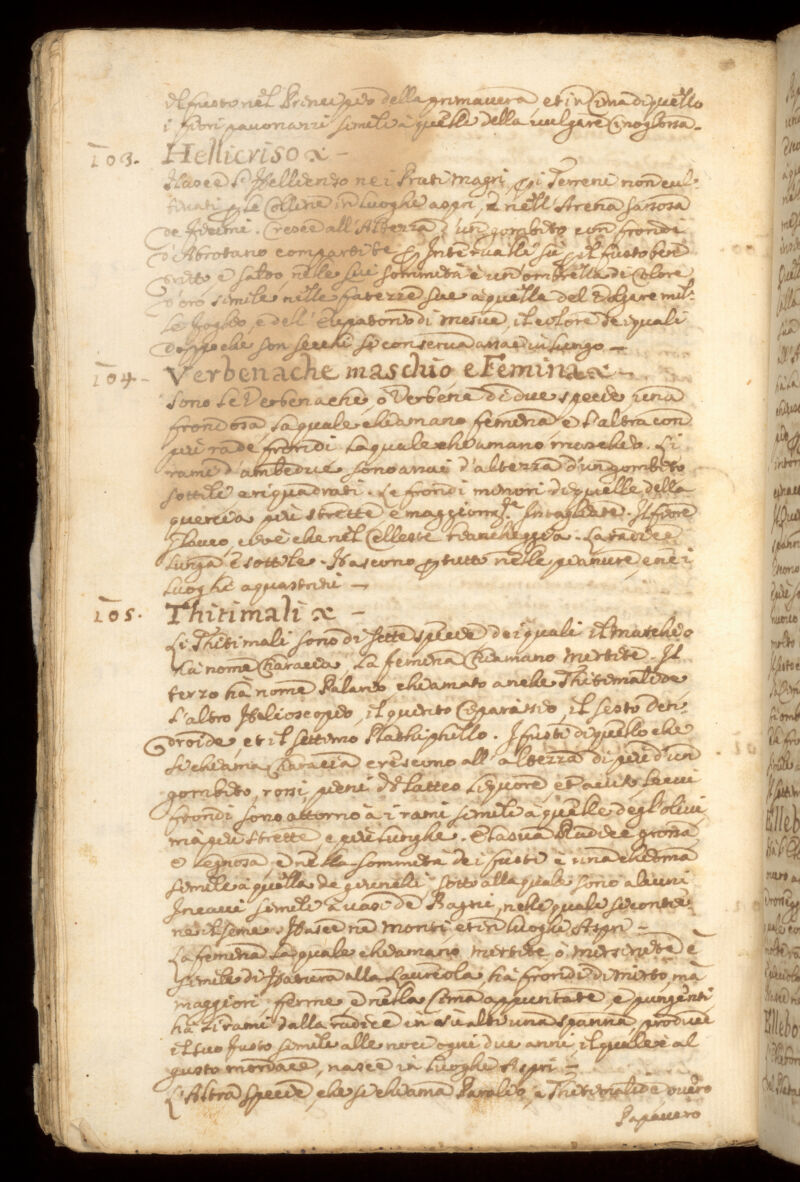 il fusto nel Principio della primavera, et in Cima di quello
i fiori pavonazzi simili à quelli della vulgare Cinoglossa.
103. Hellicriso
Nasce l'Hellicriso ne i Prati magri, p i Terreni non cul:
tivati p le Colline in luoghi aspri, e nell'Arena sassosa
de fiumi. Cresce all'Altezza d'un gombito con frondi
d'Abrotano compartite p Intervalli sù p il fusto ben
dritto e saldo, nelle sui sommità è un ombrella di Colore
d'oro simile nelle fatezze sue a quella del Volgare mil:
le foglio, e dell'Eupatorio di Mesue, il colore de i quali
doppo che son secchi si conserva assai in lungo
104. Verbenache maschio e Femina
Sono le Verbenache, ò Verbene di due specie, una
frondosa, la quale chiamano femina e l'altra con
più rade frondi la quale chiamano maschio. Li
rami d'ambedue sono anui d'altezza d'un gombito
sottili e riquadrati. Le frondi minori di quelle della
quercia più strette e maggiormte Intagliate. Il fiore
glauco, cioè che nel Celleste biancheggia. La radice
lunga, e sottile. Nascono p tutto nelle pianure, e ne i
luoghi aquastrini
105. Thitimali
Li Thitimali sono di sette specie de i quali il maschio
ha nome Characia. La femina Chiamano mirtite. Il
terzo hà nome Paralio, chiamato anche Thitimalide
l'altro Helioscopio, il quinto Ciparissio, il sesto Den:
droide, et il settimo Plathiphillo. I fusti di quello che
si chiama Characia crescono all'altezza di più d'un
gombito, rossi, pieni di latteo liquore et acuto le cui
frondi sono attorno à i rami simili a quelle degl'olivi,
mà più strette, e più lunghe. Et la sua Radice grossa
e legnosa, e nella sommità dei fusti è una chioma
simile a quella de giunchi, sotto alla quale sono alcuni
Incavi simili à vasi de Bagni, nelli quale si contie:
ne il seme. Nasce ne monti et in luoghi Aspri
La femina la quale chiamano mirtite ò mirsinite è
simile di Natura alla Laureola, hà frondi di mirto mà
maggiori, ferme, e nella Cima appuntate, e pungenti
hà li rami dalla radice in sù alti una spanna, produce
il suo frutto simile alle noci ogni due anni, il quale è al
gusto mordace, nasce in luoghi Aspri
L'Altra specie, che si chiama Paralio, e Thitimalide, overo
Papavero